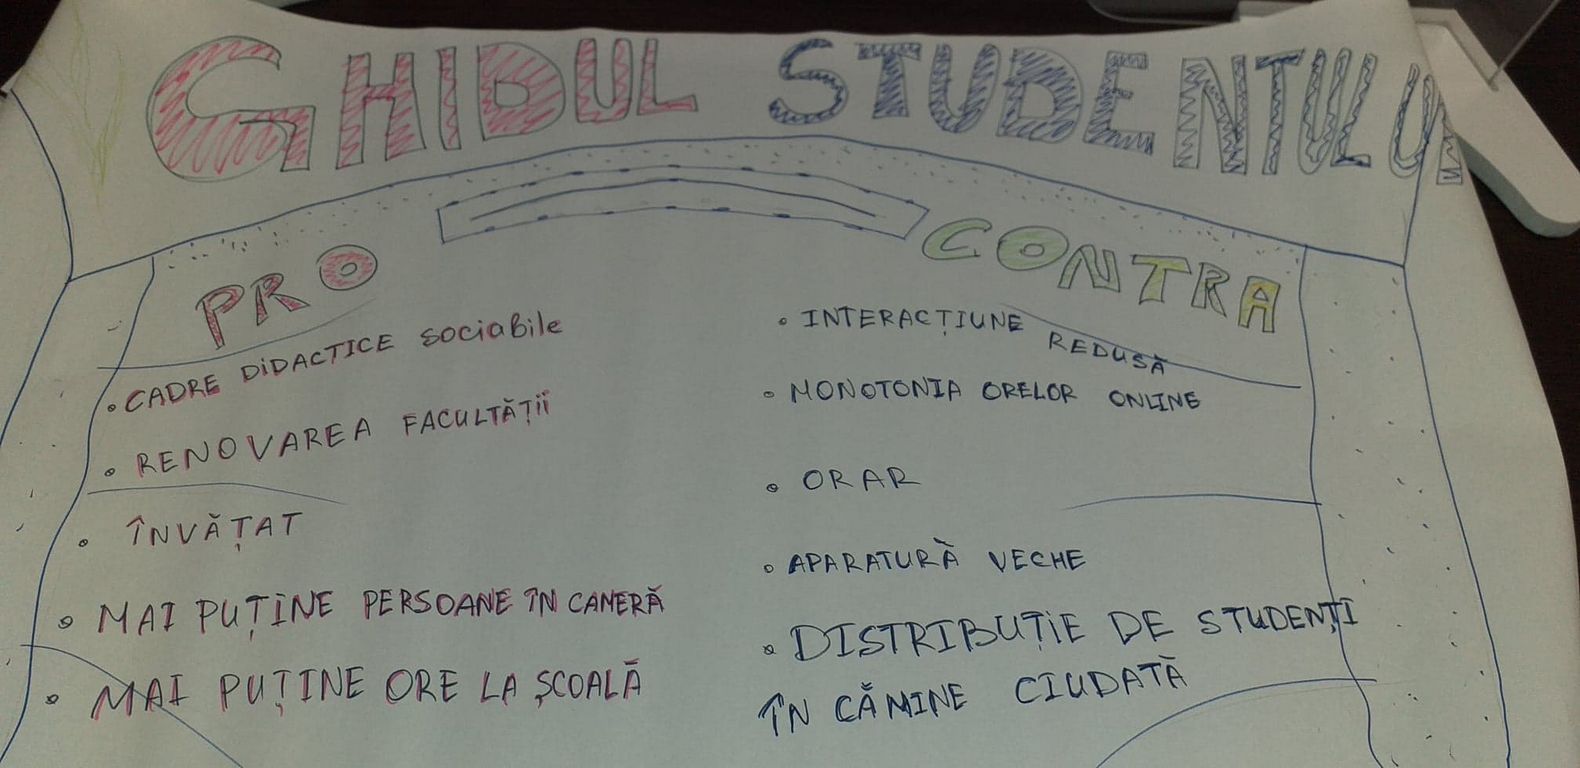 GHIDUL STUDENTULUI
PRO
• CADRE DIDACTICE sociabile
• RENOVAREA FACULTĂȚII
• ÎNVĂȚAT
• MAI PUȚINE PERSOANE ÎN CAMERĂ
• MAI PUȚINE ORE LA ȘCOALĂ
CONTRA
• INTERACȚIUNE REDUSĂ
• MONOTONIA ORELOR ONLINE
• ORAR
• APARATURĂ VECHE
• DISTRIBUȚIE DE STUDENȚI
ÎN CĂMINE CIUDATĂ